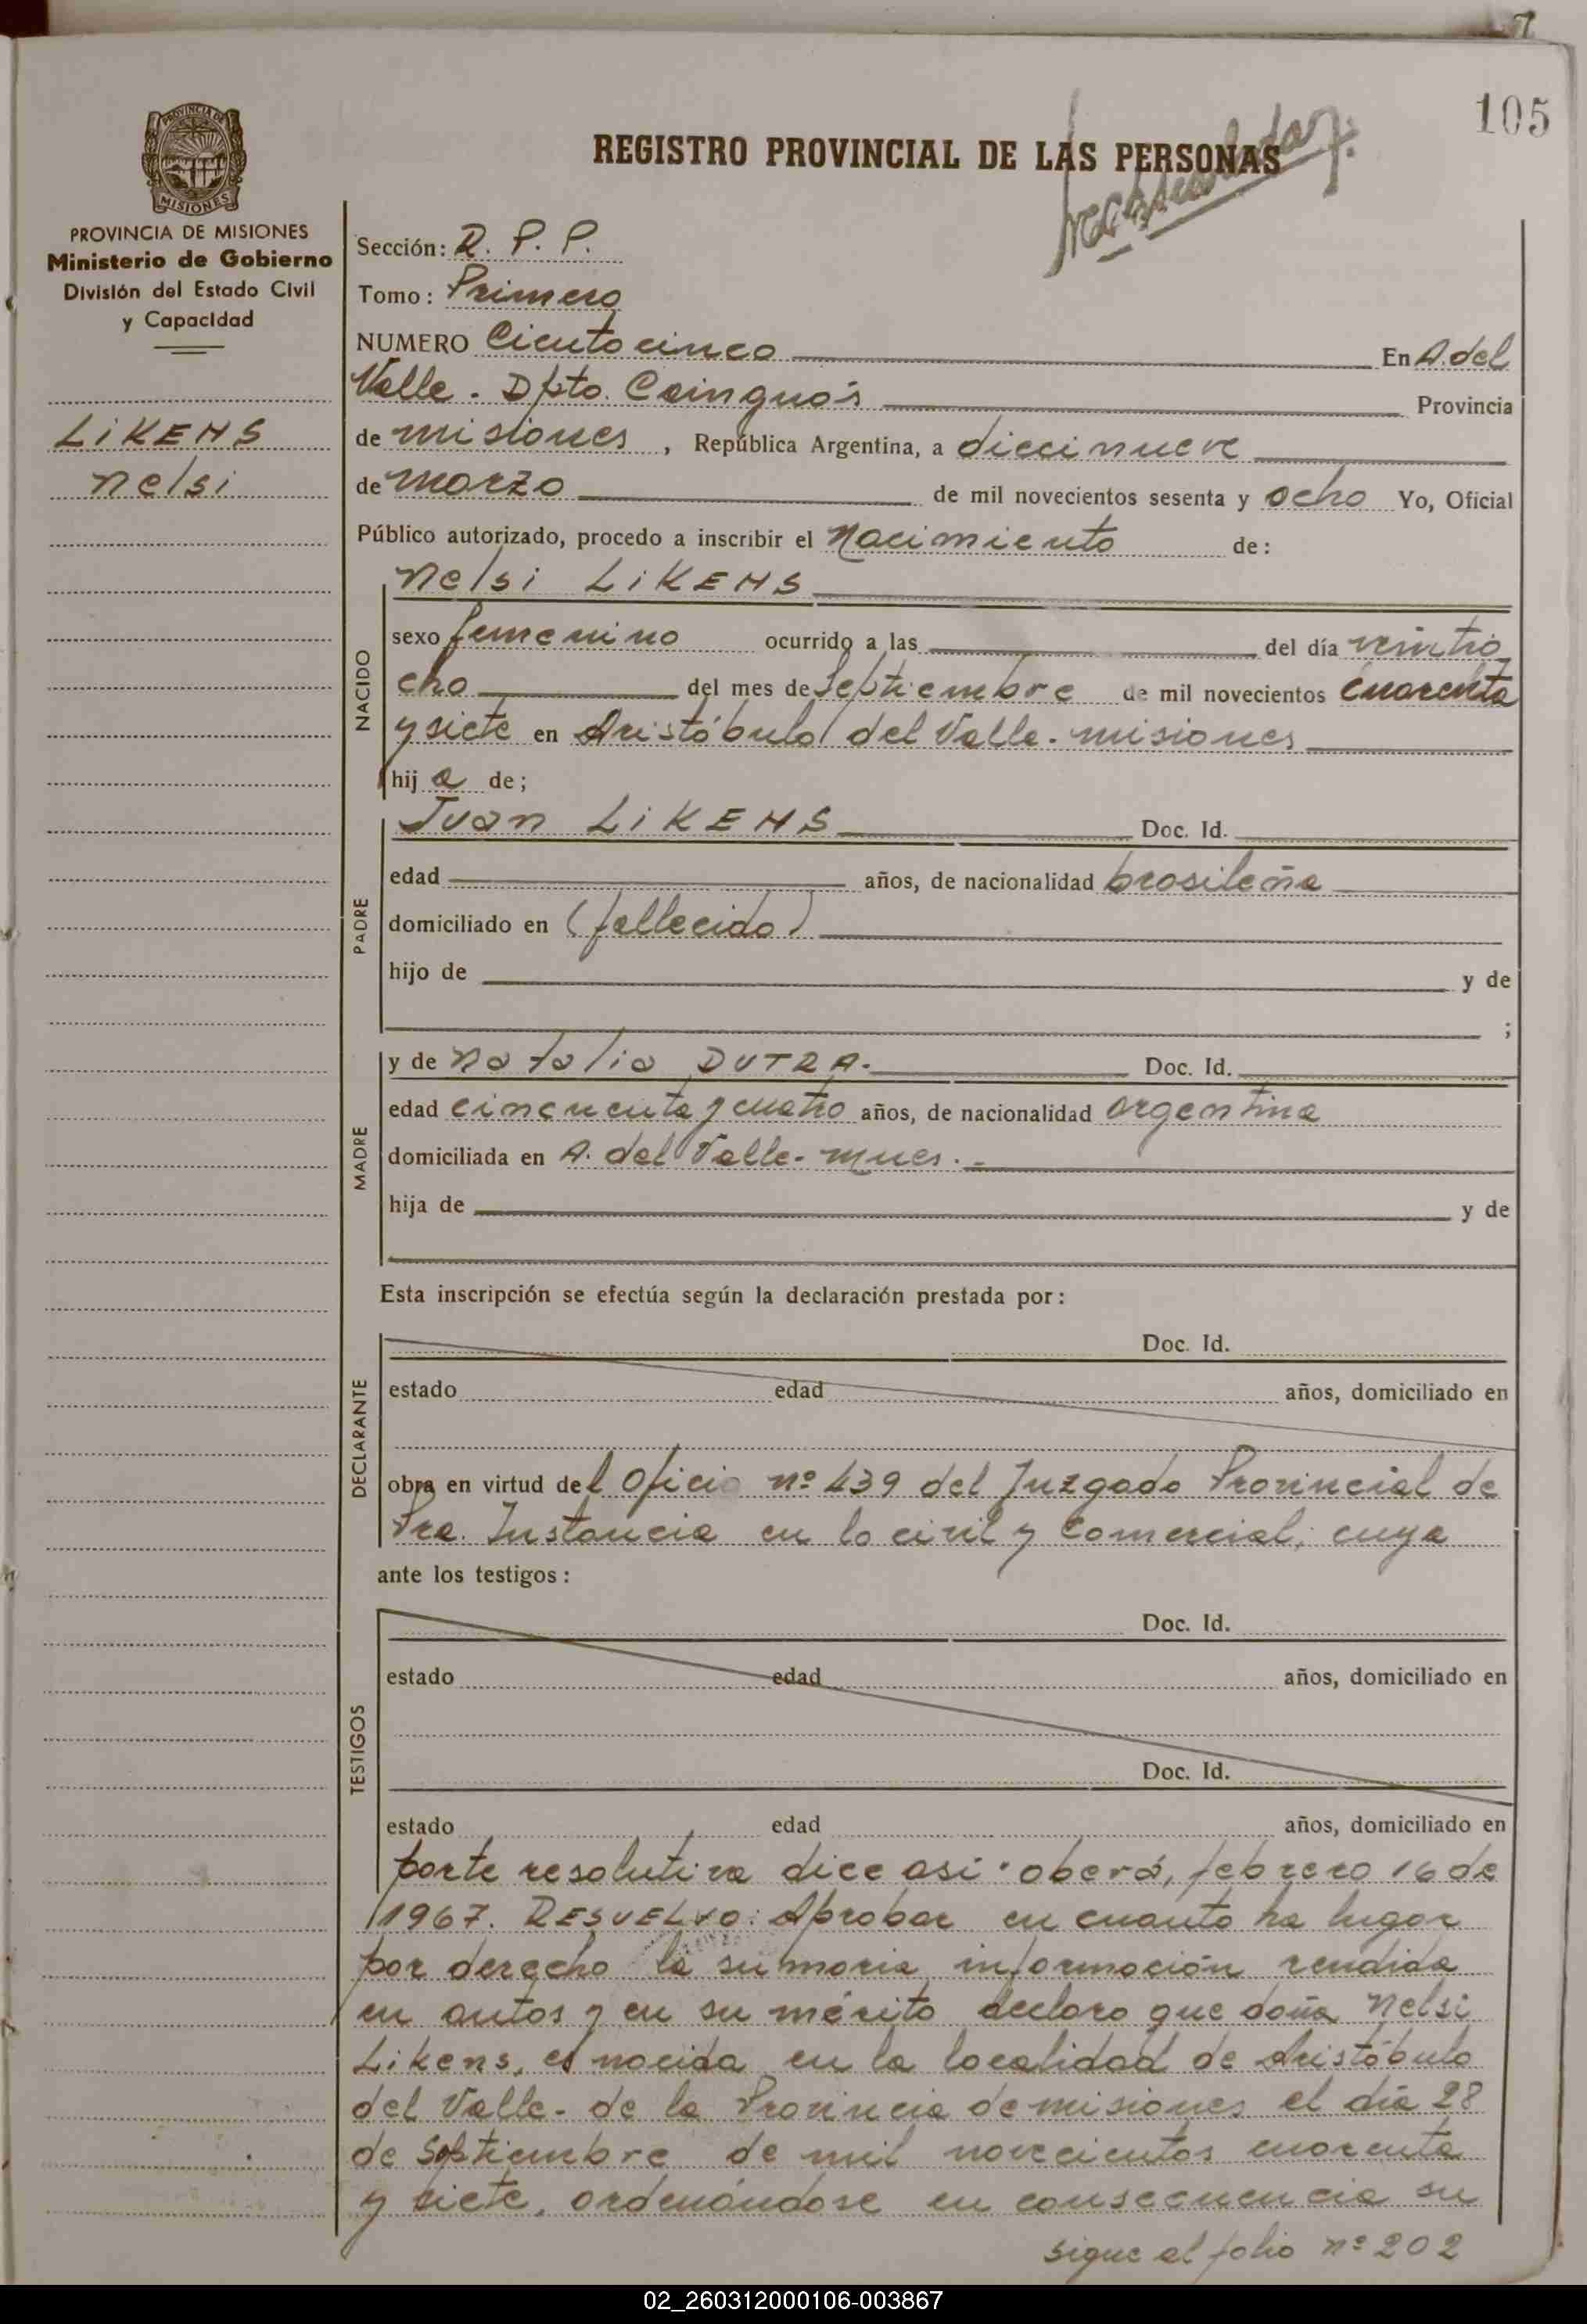 105
PROVINCIA DE
MISIONES
REGISTRO PROVINCIAL DE LAS PERSONAS
PROVINCIA DE MISIONES
Ministerio de Gobierno
División del Estado Civil
y Capacidad
LiKENS
Nelsi
Sección: R. P. P.
Tomo: Primero
NUMERO Ciento cinco En A. del
Valle. Dpto. Cainguás Provincia
de misiones, República Argentina, a diecinueve
de marzo de mil novecientos sesenta y ocho Yo, Oficial
Público autorizado, procedo a inscribir el Nacimiento de:
Nelsi LiKENS
NACIDO
sexo femenino ocurrido a las del día veintio
cho del mes de Septiembre de mil novecientos cuarenta
y siete en Aristóbulo del Valle. misiones
hij a de;
PADRE
Juan LiKENS Doc. Id.
edad años, de nacionalidad brasileña
domiciliado en (fallecido)
hijo de y de
;
MADRE
y de Natalia DUTRA. Doc. Id.
edad cincuenta y cuatro años, de nacionalidad argentina
domiciliada en A. del Valle. Mnes.
hija de y de
Esta inscripción se efectúa según la declaración prestada por:
DECLARANTE
Doc. Id.
estado edad años, domiciliado en
obra en virtud del Oficio nº 439 del Juzgado Provincial de
Pra. Instancia en lo civil y Comercial; cuya
ante los testigos:
TESTIGOS
Doc. Id.
estado edad años, domiciliado en
Doc. Id.
estado edad años, domiciliado en
parte resolutiva dice asi: oberá, febrero 16 de
1967. RESUELVO: Aprobar en cuanto ha lugar
por derecho la sumaria información rendida
en autos y en su mérito declaro que doña Nelsi
Likens, es nacida en la localidad de Aristóbulo
del Valle. de la Provincia de misiones el día 28
de Septiembre de mil novecientos cuarenta
y siete, ordenándose en consecuencia su
sigue al folio nº 202
02_260312000106-003867